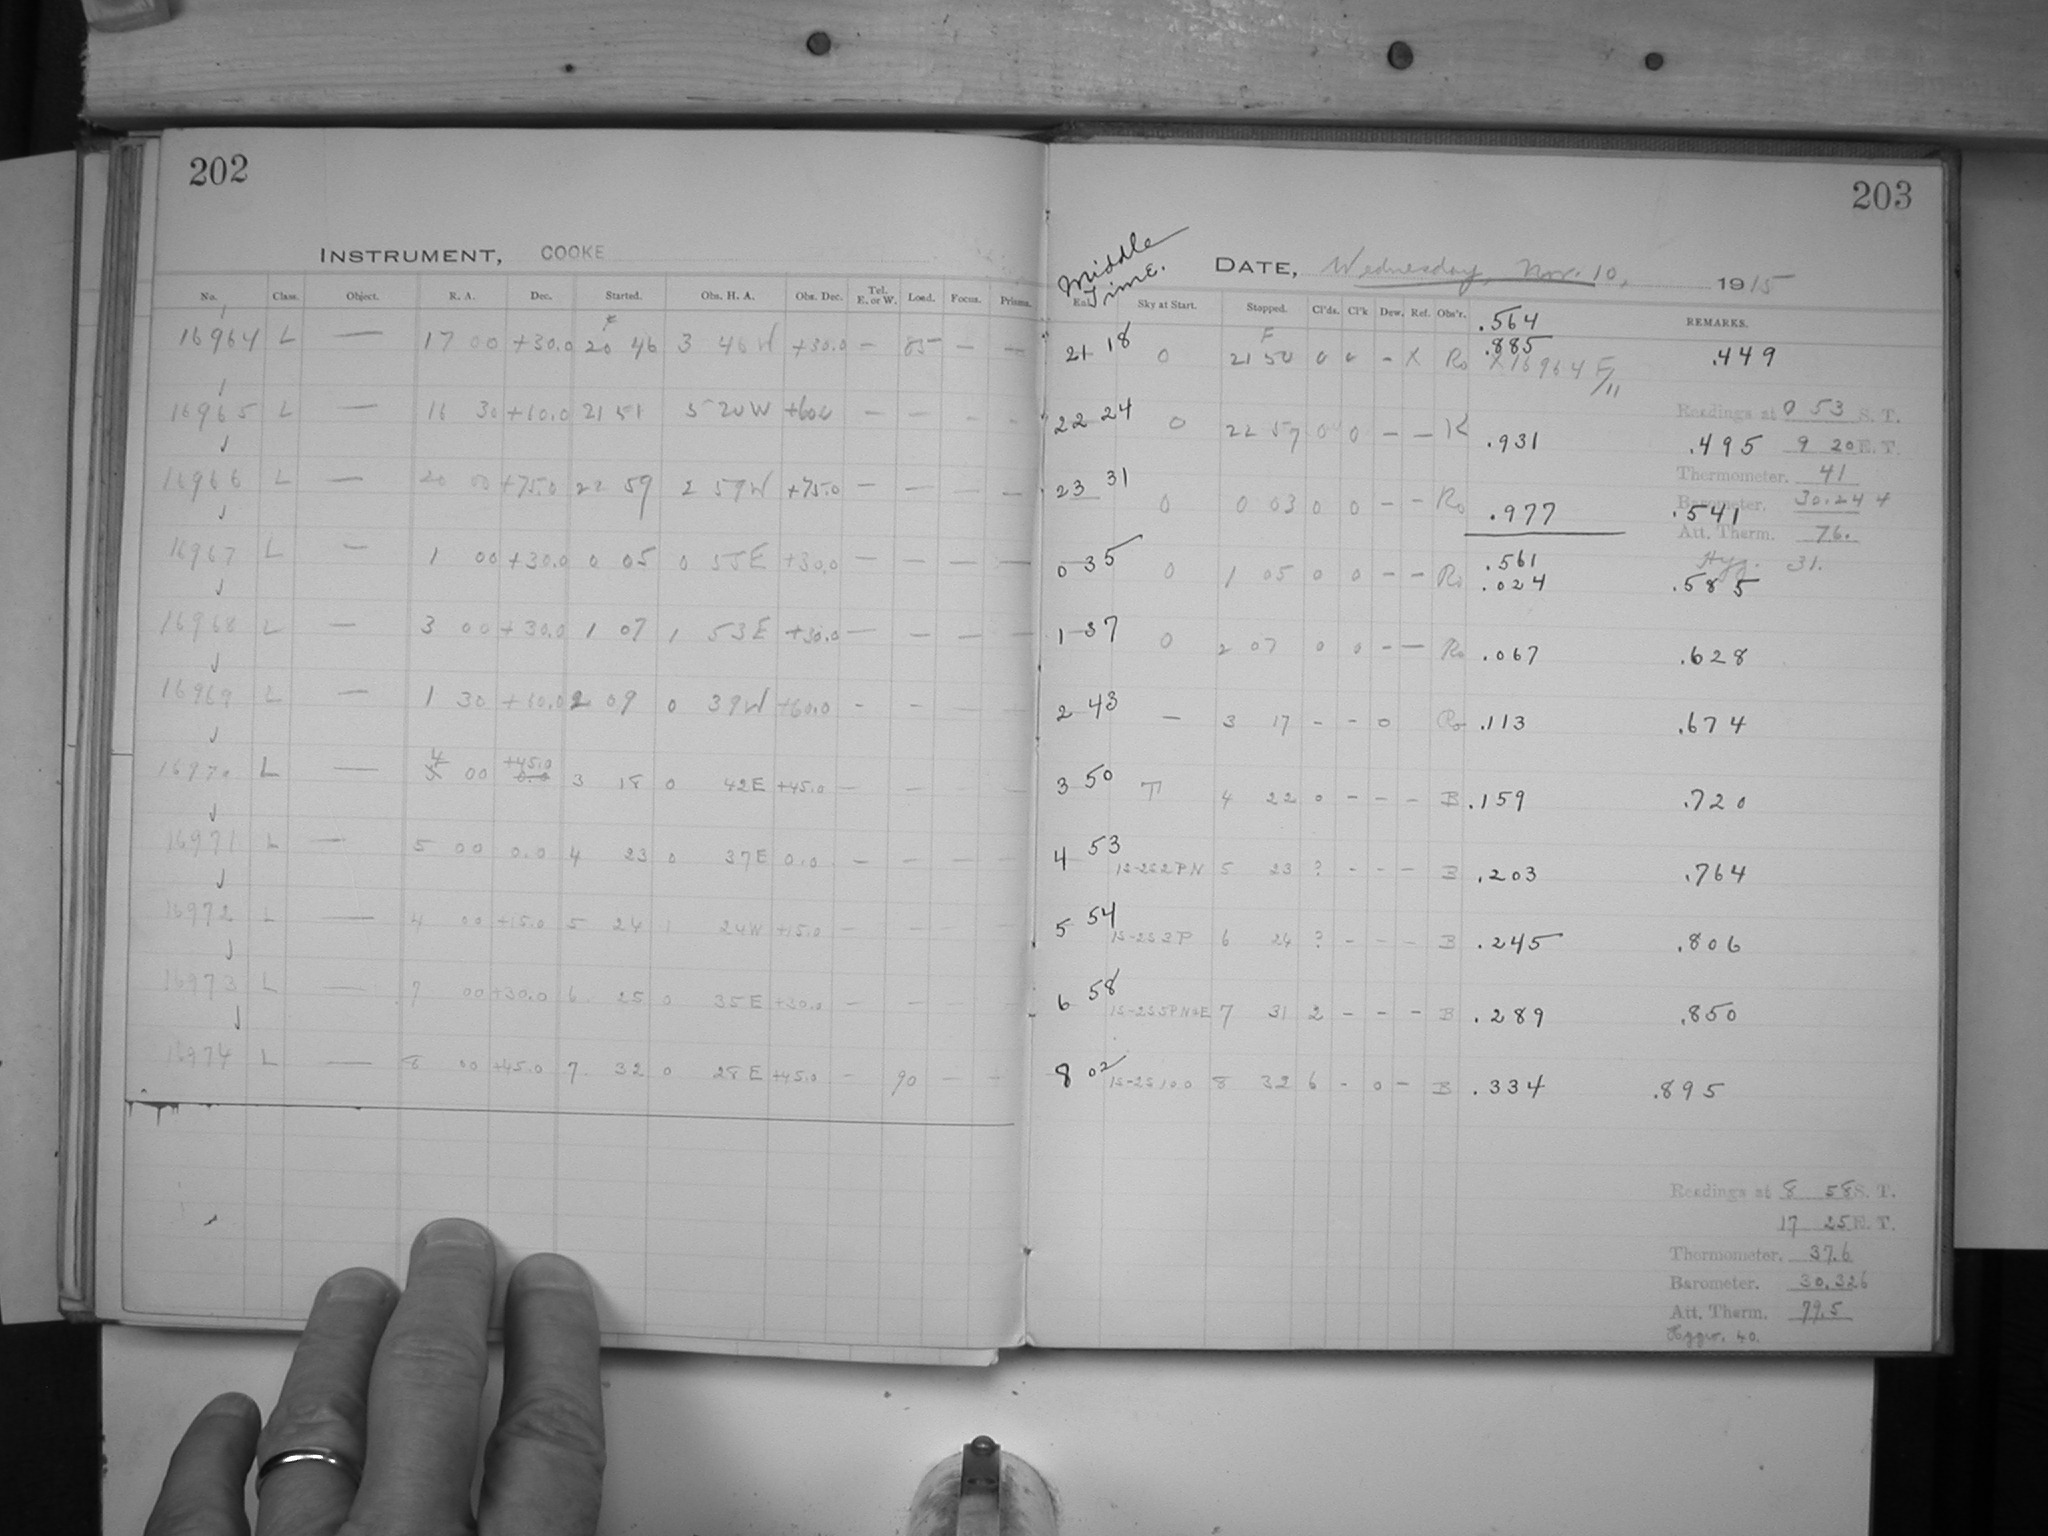 202
INSTRUMENT, COOKE
No. Class. Object. R. A. Dec. Started. Obs. H. A. Obs. Dec. Tel. E. or W. Load. Focus. Prisms.
16964 L — 17 00 +30.0 20 46 3 46 W +30.0 — 85 — —
16965 L — 16 30 +60.0 21 51 5 20 W +60.0 — — - -
16966 L — 20 00 +75.0 22 59 2 59 W +75.0 — — — —
16967 L — 1 00 +30.0 0 05 0 55 E +30.0 — — — —
16968 L — 3 00 +30.0 1 07 1 53 E +30.0 — — — —
16969 L — 1 30 +60.0 2 09 0 39 W +60.0 - - - -
16970 L — 4 00 +45.0 3 18 0 42 E +45.0 — —
16971 L — 5 00 0.0 4 23 0 37 E 0.0 — — — —
16972 L — 4 00 +15.0 5 24 1 24 W +15.0 — — — —
16973 L — 7 00 +30.0 6 25 0 35 E +30.0 — — — —
16974 L — 8 00 +45.0 7 32 0 28 E +45.0 — 90 — —
203
Middle Time.
DATE, Wednesday, Nov. 10, 1915
Sky at Start. Stopped. Cl'ds. Cl'k Dew. Ref. Obs'r. REMARKS.
.564
.885
21 18 0 F 21 50 0 0 - X Ro X 16964 F/11 .449
Readings at 0 53 S. T.
22 24 0 22 57 0 0 — — K .931 .495 9 20 E. T.
Thermometer. 41
23 31 0 0 03 0 0 - - Ro .977 .541
Barometer. 30.244
Att. Therm. 76.
Hyg. 31.
.561
0 35 0 1 05 0 0 - - Ro .024 .585
1 37 0 2 07 0 0 - — Ro .067 .628
2 43 — 3 17 - - 0 Ro .113 .674
3 50 T 4 22 0 - - - B .159 .720
4 53 1S-2S2PN 5 23 ? - - - B .203 .764
5 54 1S-2S3P 6 24 ? - - - B .245 .806
6 58 7 31 2 - - - B .289 .850
8 02 8 32 6 - 0 - B .334 .895
Readings at 8 58 S. T.
17 25 E. T.
Thermometer. 37.6
Barometer. 30.326
Att. Therm. 79.5
Hygr. 40.